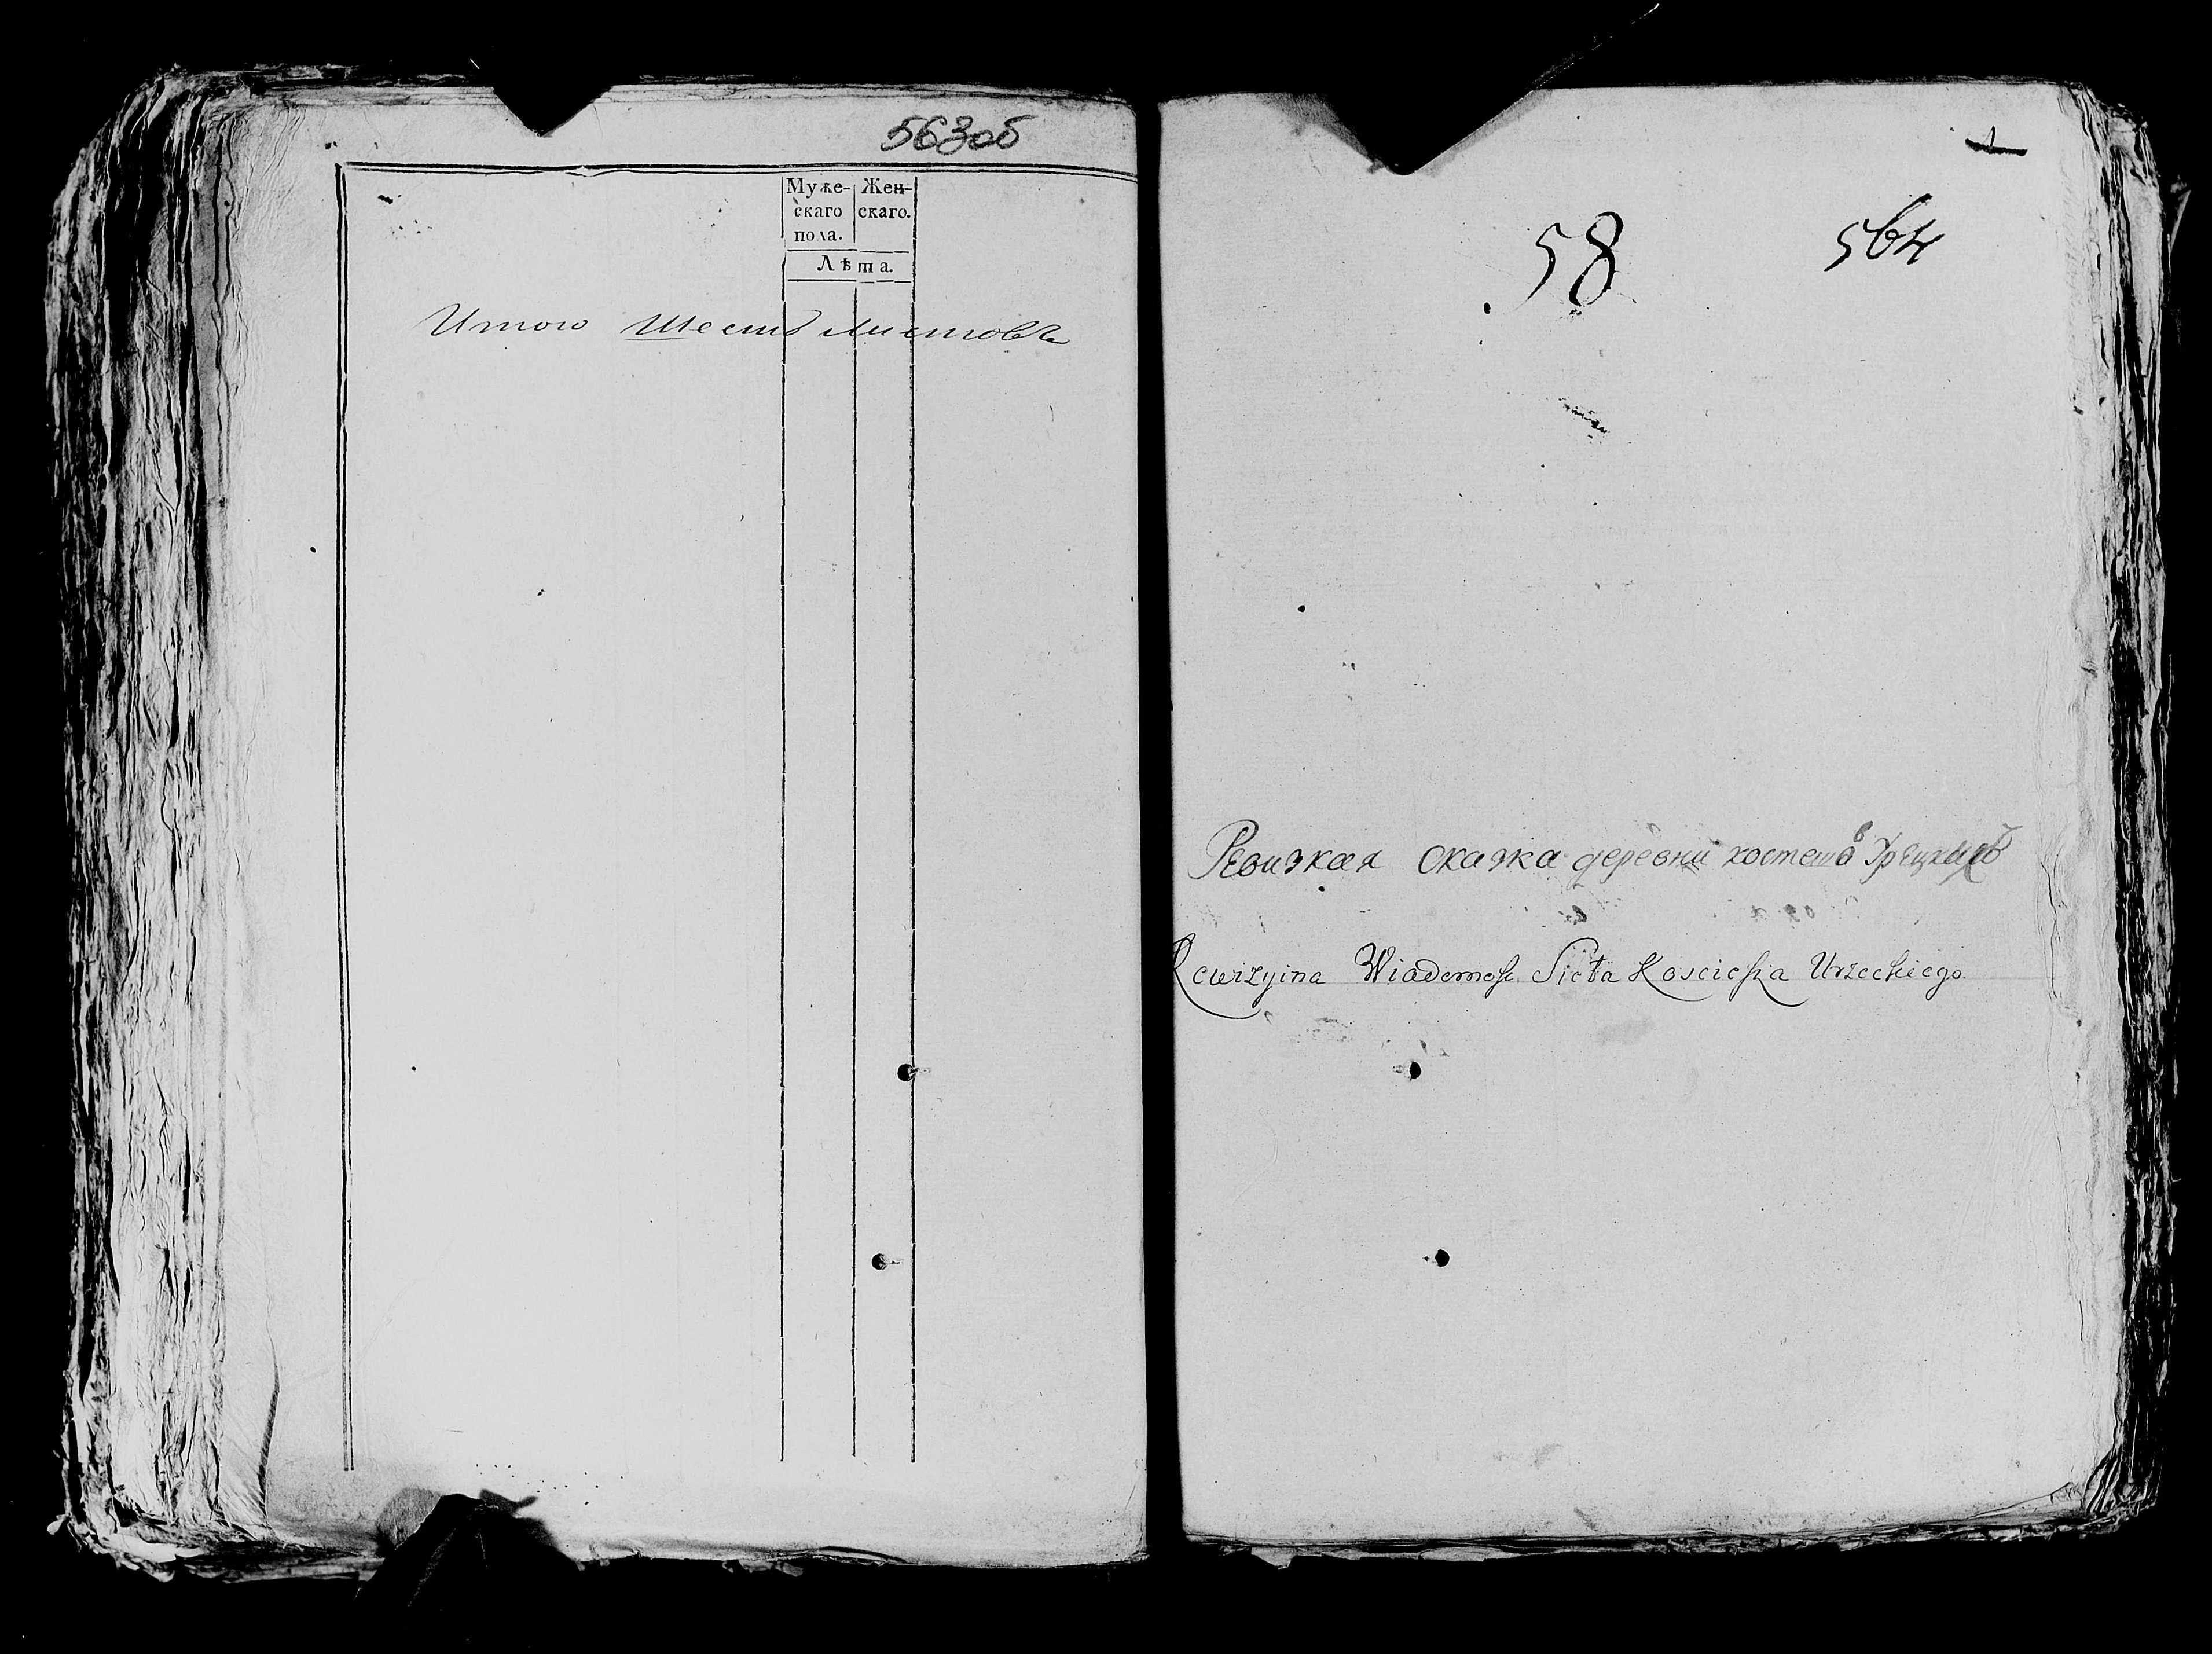 563об
Муже- Жен-
скаго скаго.
пола.
Лѣта.
Итого Шесть листовъ
1
58 564
Ревизкая сказка деревни костешовъ Урецкихъ
Rewizyina Wiadomość Sioła Kościesza Urzeckiego